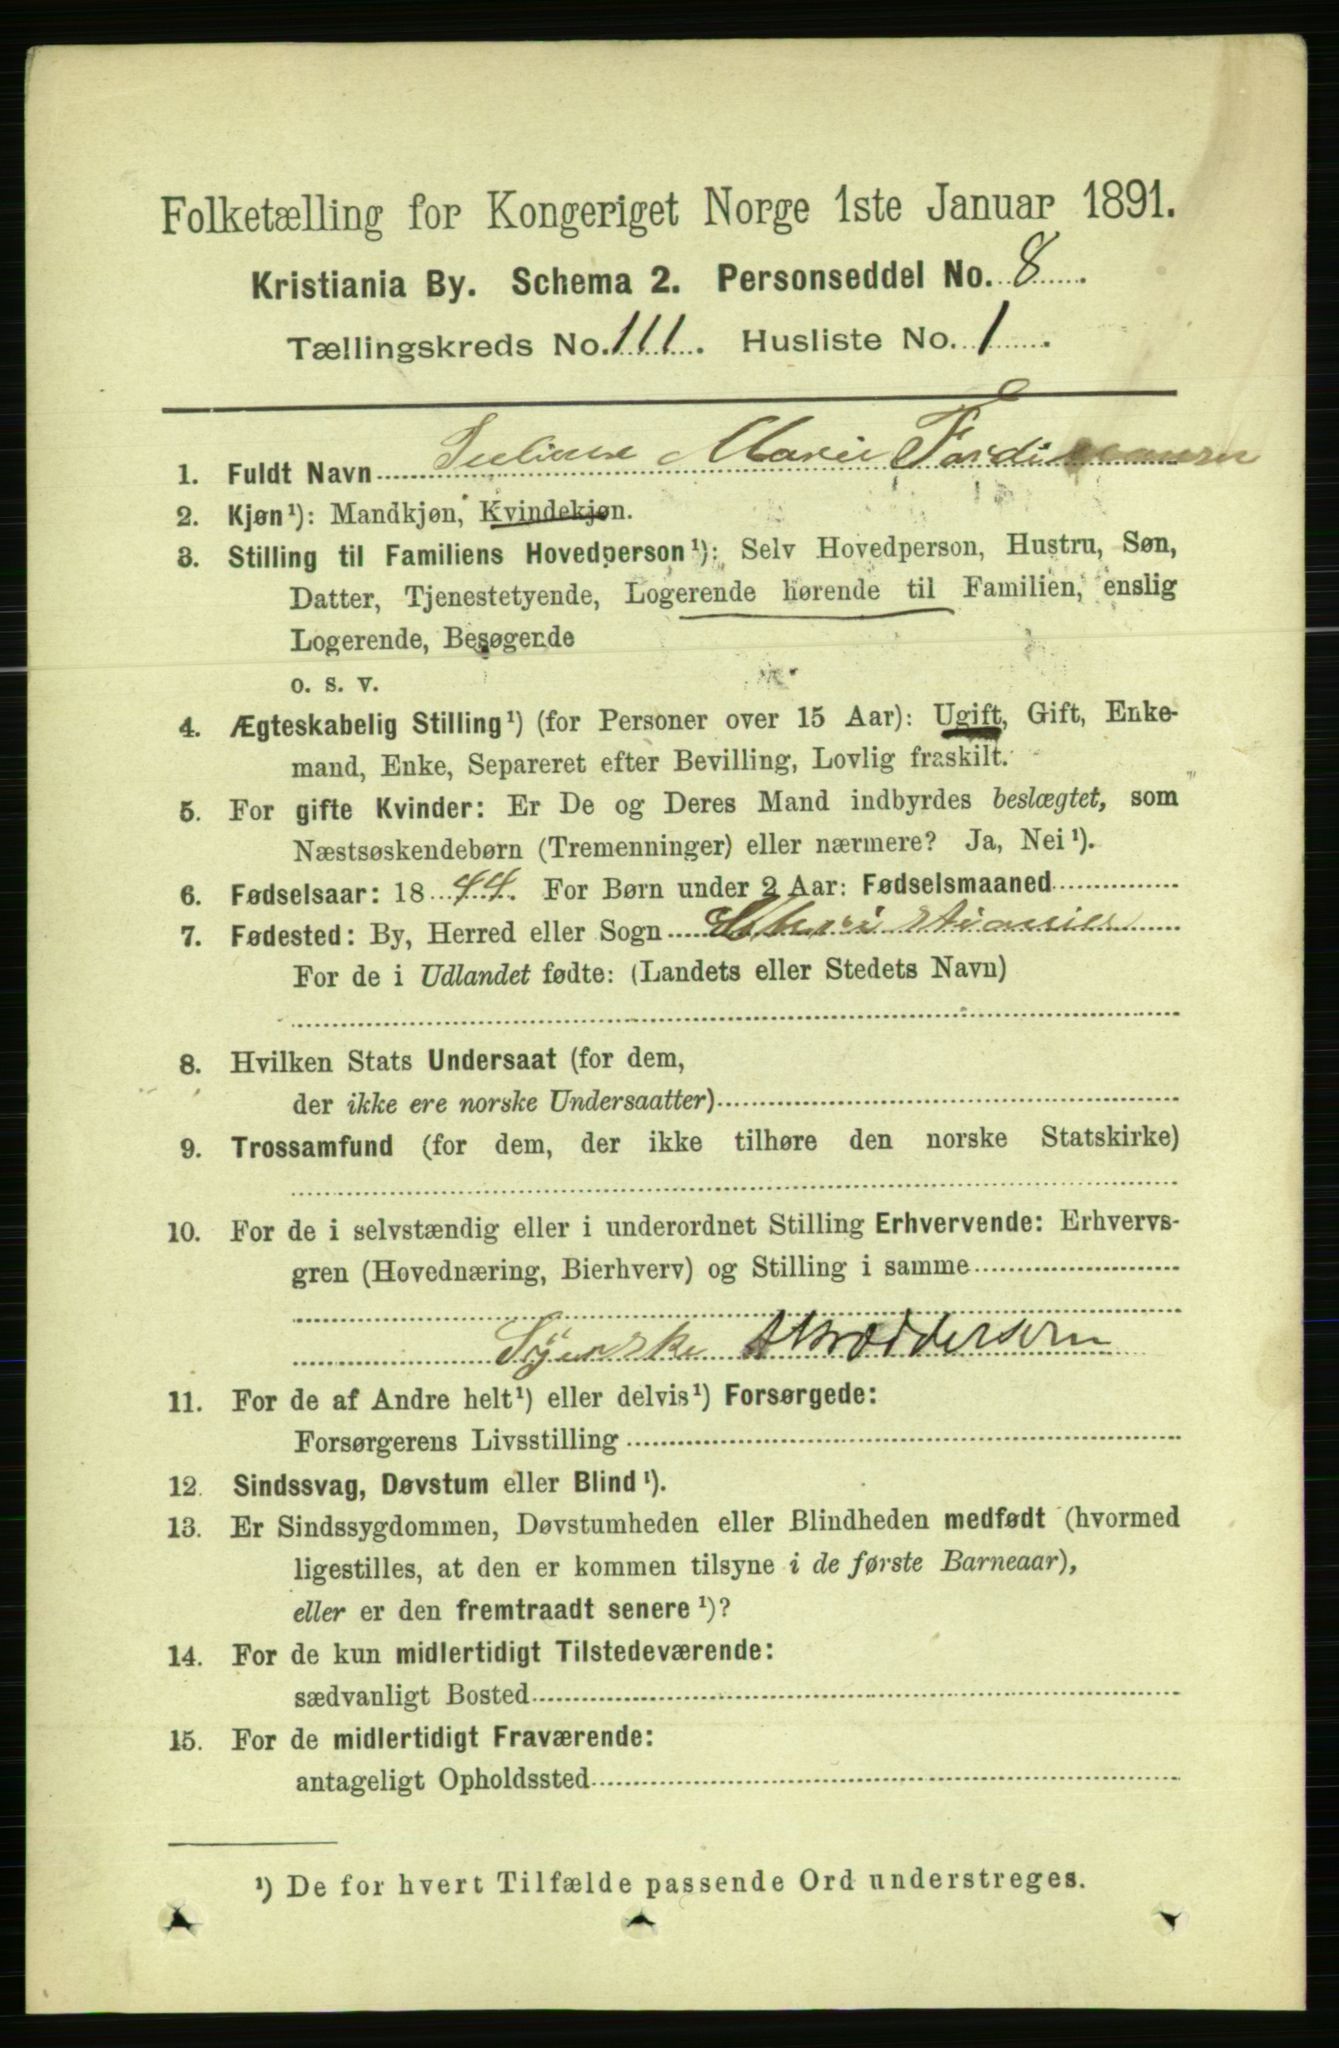 Folketælling for Kongeriget Norge 1ste Januar 1891.
Kristiania By. Schema 2. Personseddel No. 8
Tællingskreds No. 111. Husliste No. 1.
1. Fuldt Navn Marie
2. Kjøn¹): Mandkjøn, Kvindekjøn.
3. Stilling til Familiens Hovedperson¹): Selv Hovedperson, Hustru, Søn,
Datter, Tjenestetyende, Logerende hørende til Familien, enslig
Logerende, Besøgende
o. s. v.
4. Ægteskabelig Stilling¹) (for Personer over 15 Aar): Ugift, Gift, Enke-
mand, Enke, Separeret efter Bevilling, Lovlig fraskilt.
5. For gifte Kvinder: Er De og Deres Mand indbyrdes beslægtet, som
Næstsøskendebørn (Tremenninger) eller nærmere? Ja, Nei¹).
6. Fødselsaar: 1844. For Børn under 2 Aar: Fødselsmaaned
7. Fødested: By, Herred eller Sogn
For de i Udlandet fødte: (Landets eller Stedets Navn)
8. Hvilken Stats Undersaat (for dem,
der ikke ere norske Undersaatter)
9. Trossamfund (for dem, der ikke tilhøre den norske Statskirke)
10. For de i selvstændig eller i underordnet Stilling Erhvervende: Erhvervs-
gren (Hovednæring, Bierhverv) og Stilling i samme
Syerske
11. For de af Andre helt¹) eller delvis¹) Forsørgede:
Forsørgerens Livsstilling
12. Sindssvag, Døvstum eller Blind¹).
13. Er Sindssygdommen, Døvstumheden eller Blindheden medfødt (hvormed
ligestilles, at den er kommen tilsyne i de første Barneaar),
eller er den fremtraadt senere¹)?
14. For de kun midlertidigt Tilstedeværende:
sædvanligt Bosted
15. For de midlertidigt Fraværende:
antageligt Opholdssted
¹) De for hvert Tilfælde passende Ord understreges.